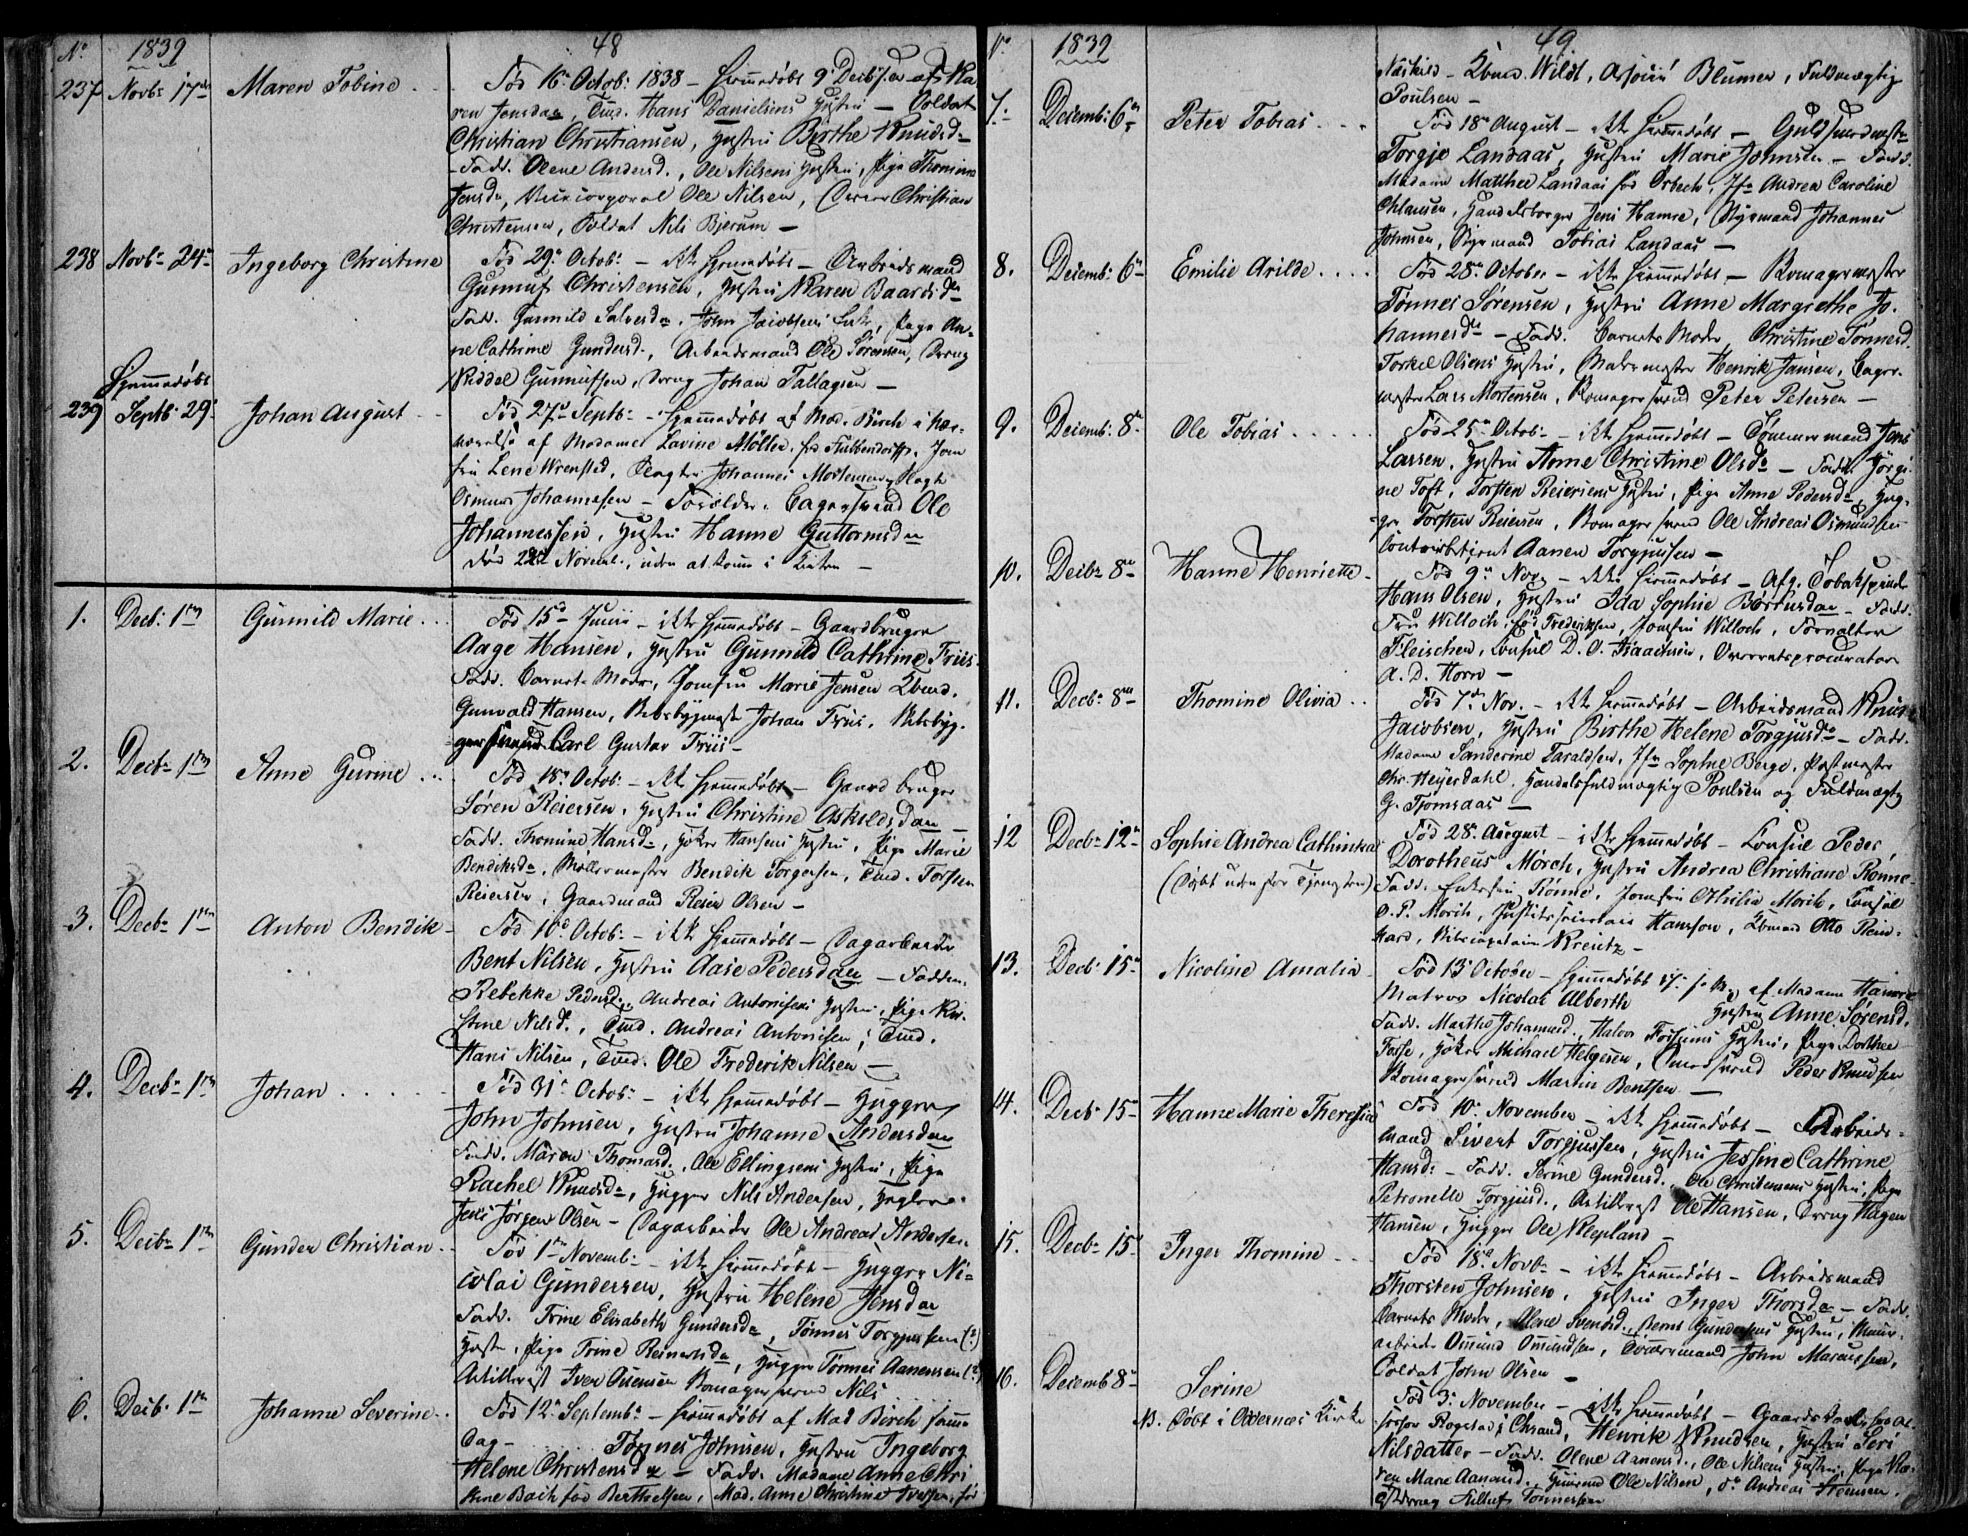 No 1839 48
237 Novbr 17de Maren Tobine . . Fød 16de Octob: 1838 – hjemmedøbt 9 Decbr s.A. af Ma-
ren Jensdn, Tmd. Hans Danielsens Hustru – Soldat
Christian Christiansen, Hustru Birthe Knudsd.
– Fadd. Olene Andersd., Ole Nilsens Hustru, Pige Thomine
Jensdn, Vicecorporal Ole Nilsen, Christian
Christensen, Soldat Nils Bjerum –
238 Novbr 24de Ingeborg Christine Fød 29de Octob: – ikke hjemmedøbt – Arbeidsmand
Gunnuf Christensen, Hustru Maren Baardsdn
Fadd. Gunnild Salvesdn, John Jacobsens Enke, Pige An-
ne Cathrine Gundersd., Arbeidsmand Ole Sørensen, Dreng
Reddal Gunnufsen, Dreng Johan Tallagsen –
Hjemmedøbt
239 Septb: 29. Johan August . . Fød 27de Septbr – hjemmedøbt af Mad. Birch i Nær-
værelse af Madame Lavine Møller, fød Fuhlendorff, Jom
fru Lene Wrensted, Johannes Mortensen,
Osmund Johannesen – Forældre: Bagersvend Ole
Johannessen, Hustru Hanne Guttormsdn
død 22de Novemb:, uden at komme i Kirken –
1. Decb: 1ste Gunnild Marie . . . Fød 15de Junii – ikke hjemmedøbt – Gaardbruger
Aage Hansen, Hustru Gunnild Cathrine Friis
Fadd. Barnets Moder, Jomfru Marie Jensen
Gunvald Hansen, Skibsbygmester Johan Friis, Skibsbyg-
gersvend Carl Gustav Friis –
2. Decbr 1ste Anne Gurine . . . Fød 18de Octob: – ikke hjemmedøbt – Gaardbruger
Søren Reiersen, Hustru Christine Askildsdan –
Fadd. Thomine Hansdn, Hansens Hustru, Pige Marie
Bendiksdn, Møllermester Bendik Torgersen, Tmd. Torsten
Reiersen, Gaardmand Reier Olsen –
3. Decbr 1ste Anton Bendik – Fød 10de Octob: – ikke hjemmedøbt – Dagarbeider
Bent Nilsen, Hustru Aase Pedersdan – Fadder.
Rebekke Pedersd., Andreas Antonisens Hustru, Pige Kir-
stine Nilsd., Tmd. Andreas Antonisen, Tmd.
Hans Nilsen, Tmd. Ole Frederik Nilsen –
4. Decbr 1ste Johan . . . . . Fød 31te Octob: – ikke hjemmedøbt – Hugger
John Johnsen, Hustru Johanne Andersdan
Fadd. Maren Thomasd., Ole Ellingsens Hustru, Pige
Rachel Knudsdn, Hugger Nils Andersen,
Jens Jørgen Olsen – Dagarbeider Ole Andreas Andersen
5. Decbr 1ste Gunder Christian . . Fød 1ste Novemb: – ikke hjemmedøbt – Hugger Ni-
colai Gundersen, Hustru Helene Jensdan
Fadd. Trine Elisabeth Gundersdn, Tønnes Torgjussen (?)
Hustr. Pige Trine Reinertsdn, Hugger Tønnes Aanensen (?)
Artillerist Iver Svensen Komagersvend Nils . . . . .
6. Decb: 1ste Johanne Severine . . Fød 12te Septembr – hjemmedøbt af Mad Birch samme
Dag – . . . . . Tønnes Johnsen, Hustru Ingeborg
Helene Christensdn – Fadd. Madame Anne Chri
stine Bach fød Berthelsen, Mad. Anne Christine Iversen, fød
No 1839 49
Wildt, Blumer, Fuldmægtig
Poulsen –
7. Decemb: 6te Peter Tobias . . . Fød 18de August – ikke hjemmedøbt – Guldsmedmestr
Torgje Landaas, Hustru Marie Johnsen – Fadd.
Madame Matthea Landaas fød Orbech, Jfr Andrea Caroline
Chlausen, Handelsborger Jens Hamre, Styrmand Johannes
Johnsen, Styrmand Tobias Landaas –
8. Decemb: 6te Emilie Arilde . . . . Fød 28de October – ikke hjemmedøbt – Komagermester
Tønnes Sørensen, Hustru Anne Margrethe Jo-
hannesdn – Fadd. Barnets Moder, Christine Tønnesd.
Torkel Olsens Hustru, Malermester Henrik Jansen, Bager-
mester Lars Mortensen, Komagersvend Peter Petersen –
9. Decemb: 8de Ole Tobias . . . . . Fød 25de Octob: – ikke hjemmedøbt – Tømmermand Jens
Larsen, Hustru Anne Christine Olsdn – Fadd. Jørgi-
ne Toft, Torsten Reiersens Hustru, Pige Anne Pedersdn, Hug-
ger Torsten Reiersen, Komagersvend Ole Andreas Osmundsen
Contoirbetjent Aanen Torgjussen –
10. Decbr 8de Hanne Henriette – Fød 9de Nov. – ikke hjemmedøbt – Afg. Tobakspinder
Hans Olsen, Hustru Ida Sophie Børresdan – Fadd.
Fru Willoch, fød Frederiksen, Jomfru Willoch, Forvalter
Fleischer, Consul D. O. Isaachsen, Overretsprocurator
A. D. Horn –
11. Decbr 8de Thomine Olivia . . Fød 7de Nov. – ikke hjemmedøbt – Arbeidsmand Knud
Jacobsen, Hustru Birthe Helene Torgjusdn – Fadd.
Madame Sanderine Taraldsen, Jfr Sophie Berge, Postmester
Chr. Heyerdahl, Handelsfuldmægtig Poulsen og Fuldmægtig
G. Tjomsaas –
12 Decbr 12te Sophie Andrea Cathinka Fød 28de August – ikke hjemmedøbt – Consul Peder
Dorotheus Mørch, Hustru Andrea Christiane Rønne –
(Døbt uden for Tjenesten) Fadd. Rønne, Jomfru Othilia Morch, Consul
O. P. Morch, Justitssecretair Hansson, Otto Rein-
hard, Skibscapitain Kreutz –
13. Decb: 15de Nicoline Amalia – Fød 13de October – hjemmedøbt af Madame Hanna
Matros Nicolai Alberth Hustru Anne Sørensd.
Fadd. Marthe Johannesd., Halvor Fossums Hustru, Pige Dorthea
Fosse, Michael Helgesen, Smedsvend Peder Knudsen
Komagersvend Martin Bentsen –
14. Decb: 15de Hanne Marie Theresia Fød 10de November – ikke hjemmedøbt – Arbeids-
mand Sivert Torgjussen, Hustru Jessine Cathrine
Hansd: – Fadd. Serine Gundersd., Ole Christensens Hustru, Pige
Petronelle Torgjusd., Artillerist Ole Hansen, Dreng Hagen
Hansen, Hugger Ole Klepland –
15. Decbr 15de Inger Thomine . . . Fød 18de Novbr – ikke hjemmedøbt – Arbeidsmand
Thorsten Johnsen, Hustru Inger Thorsdn – Fadd.
Barnets Moder, Olene Svendsd., Bernt Gundersens Hustru, Muur-
arbeider Omund Omundsen, Tømmermand John Marcussen,
Soldat John Olsen –
16. Decemb 8de Serine Fød 3de November – ikke hjemmedøbt – Gaards
NB. Døbt i Oddernes Kirke Rogstad i Chrsand, Henrik Knudsen, Hustru Seri
Nilsdatter – Fadd. Olene Aanensd., Ole Nilsens Hustru, Pige Ka-
ren Marie Aanensd., Ole Nilsen, do Andreas Hansen,
Dreng Tønnessen